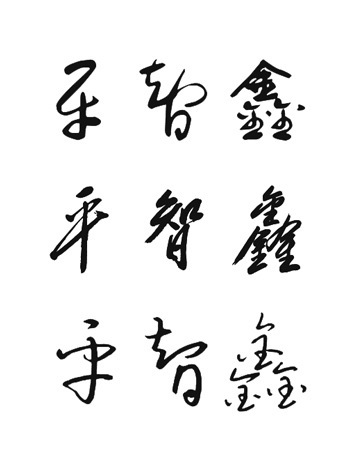 平智鑫
平智鑫
平智鑫